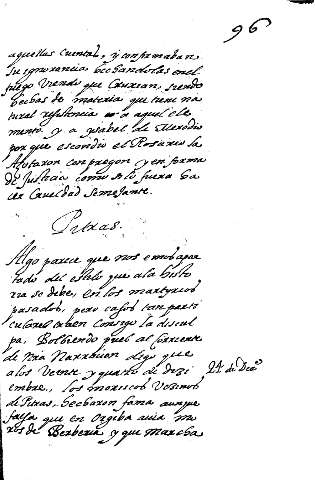 96
aquellas cuentas, y confirmadan
su ignorancia hechandolas en el
fuego viendo que cruxian, siendo
hechas de materia que tiene na
tural resistencia a aquel ele
mento. y a ysabel de Meradio
por que escondio el Rosario la
Asotaron con pregon y en forma
de Justicia como si lo fuera ha
cer Crueldad Semejante.
Pitras.
Algo parece que nos emos apar
tado del estilo que ala histo
ria se debe, en los martyrios
pasados, pero casos tan parti
culares traen consigo la discul
pa, Bolbiendo pues al corriente
de nra Narracion digo que
a los Veinte y quatro de dizi
embre, los moriscos Vezinos
de Pitras, hecharon fama aunque
falsa que en Orgiba avia mo
ros de Berberia y que marcha
24 de Dize